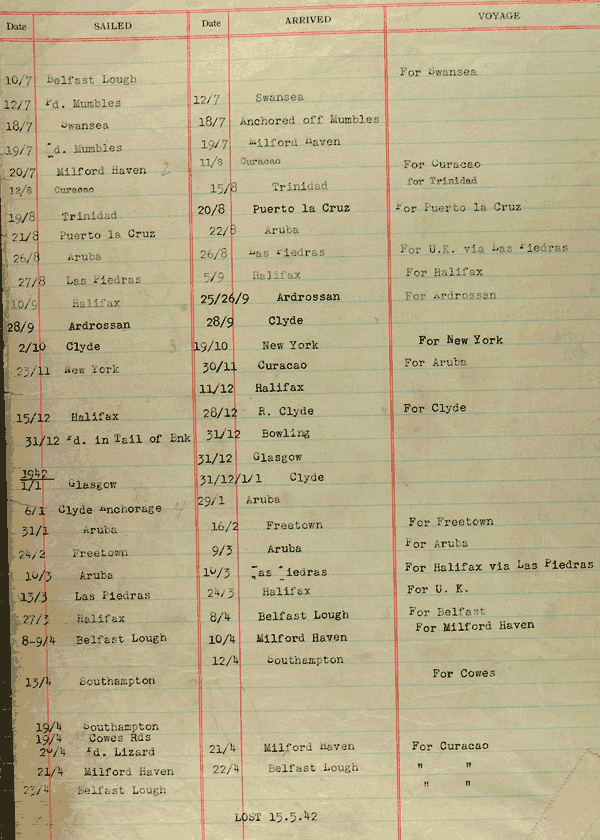 Date SAILED Date ARRIVED VOYAGE
For Swansea
10/7 Belfast Lough
12/7 Pd. Mumbles 12/7 Swansea
18/7 Swansea 18/7 Anchored off Mumbles
19/7 Pd. Mumbles 19/7 Milford Haven
20/7 Milford Haven 2 11/8 Curacao For Curacao
12/8 Curacao 15/8 Trinidad for Trinidad
19/8 Trinidad 20/8 Puerto la Cruz For Puerto la Cruz
21/8 Puerto la Cruz 22/8 Aruba
26/8 Aruba 26/8 Las Piedras For U.K. via Las Piedras
27/8 Las Piedras 5/9 Halifax For Halifax
10/9 Halifax 25/26/9 Ardrossan For Ardrossan
28/9 Ardrossan 28/9 Clyde
2/10 Clyde 3 19/10 New York For New York
23/11 New York 30/11 Curacao For Aruba
11/12 Halifax
15/12 Halifax 28/12 R. Clyde For Clyde
31/12 Pd. in Tail of Bnk 31/12 Bowling
31/12 Glasgow
1942
1/1 Glasgow 31/12/1/1 Clyde
6/1 Clyde Anchorage 4 29/1 Aruba
31/1 Aruba 16/2 Freetown For Freetown
24/2 Freetown 9/3 Aruba For Aruba
10/3 Aruba 10/3 Las Piedras For Halifax via Las Piedras
13/3 Las Piedras 24/3 Halifax For U. K.
27/3 Halifax 8/4 Belfast Lough For Belfast
8-9/4 Belfast Lough 10/4 Milford Haven For Milford Haven
12/4 Southampton
13/4 Southampton For Cowes
19/4 Southampton
19/4 Cowes Rds
20/4 Pd. Lizard 21/4 Milford Haven For Curacao
21/4 Milford Haven 22/4 Belfast Lough " "
23/4 Belfast Lough " "
LOST 15.5.42